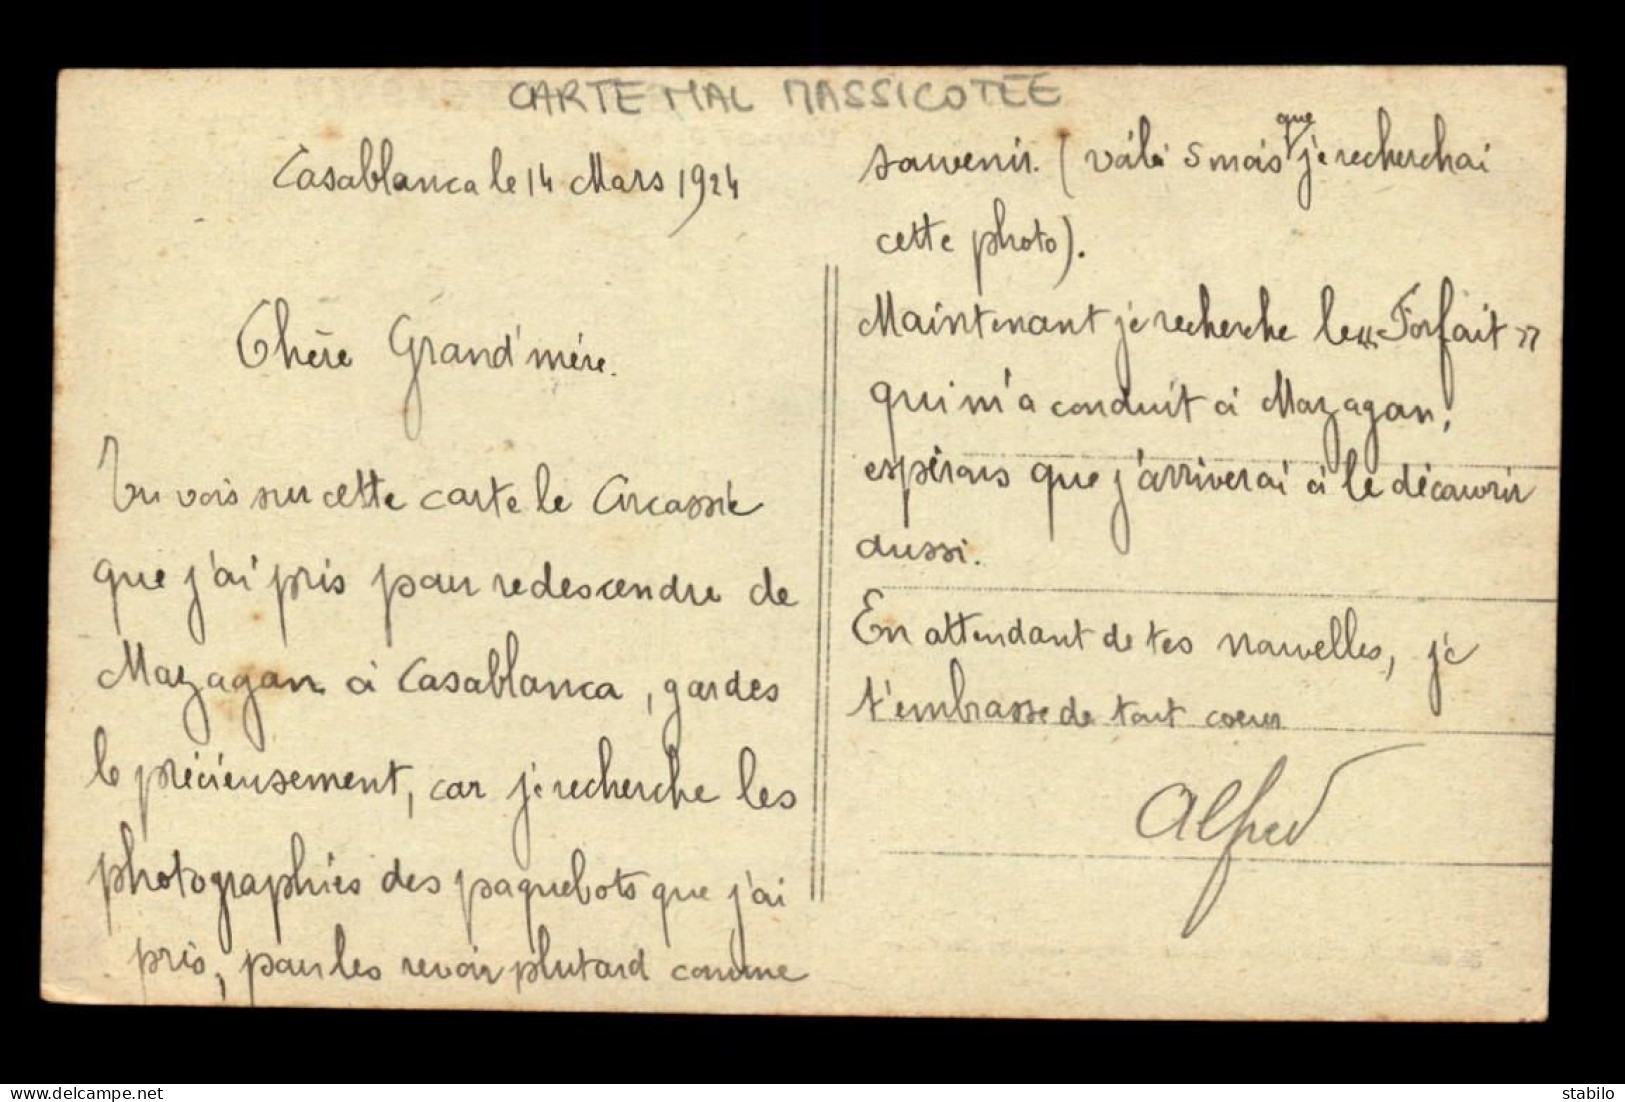 CARTE MAL MASSICOTÉE
Casablanca le 14 Mars 1924
Chère Grand'mère.
Tu vois sur cette carte le Circassie
que j'ai pris pour redescendre de
Mazagan à Casablanca, gardes
le précieusement, car je recherche les
photographies des paquebots que j'ai
pris, pour les revoir plutard comme
souvenir. (voilà 5 mois que je recherchai
cette photo).
Maintenant je recherche le « Forfait »
qui m'a conduit à Mazagan,
espérons que j'arriverai à le découvrir
aussi.
En attendant de tes nouvelles, je
t'embrasse de tout coeur
Alfred
stabilo